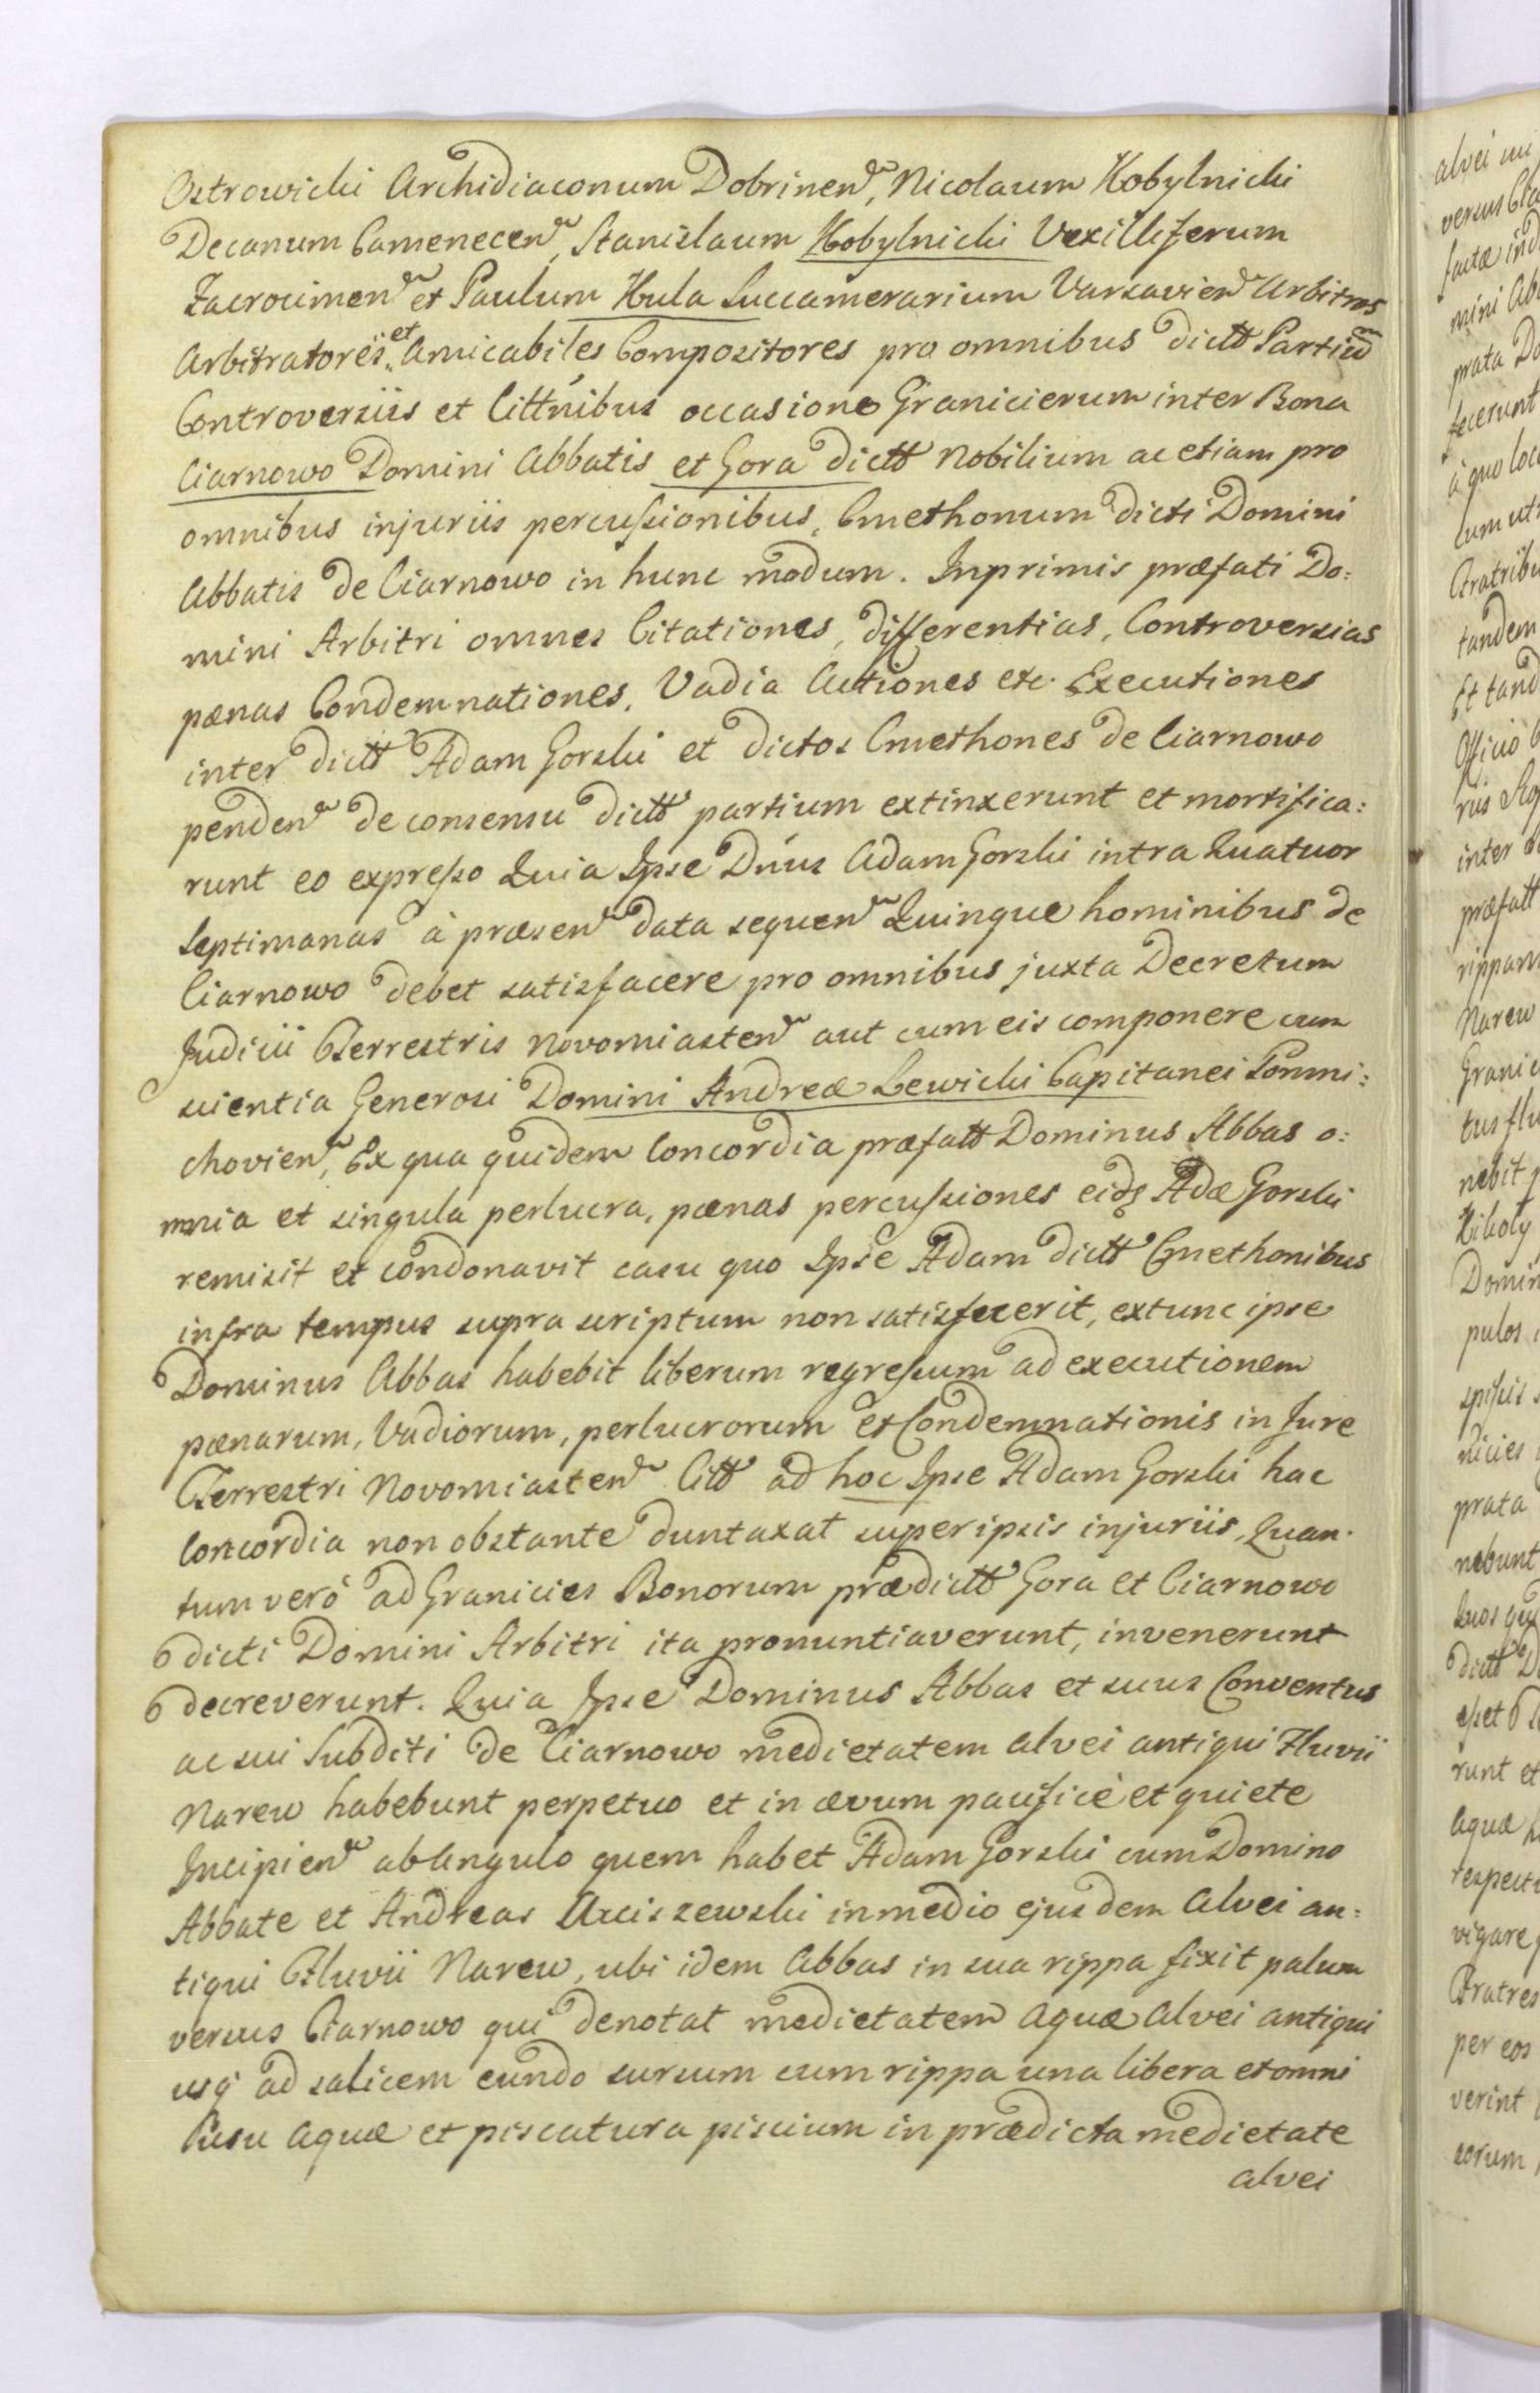 Ostrowicki Archidiaconum Dobrinen, Nicolaum Kobylnicki
Decanum Camenecen, Stanislaum Kobylnicki Vexilliferum
Zacrocimen et Paulum Hula Succamerarium Varsavien Arbitros
Arbitratores et Amicabiles Compositores pro omnibus dictt Partiū
Controversiis et Cittnibus occasione Granicierum inter Bona
Ciarnowo Domini Abbatis et Gora dictt Nobilium ac etiam pro
omnibus injuriis percussionibus, Cmethonum dicti Domini
Abbatis de Ciarnowo in hunc modum. Inprimis præfati Do:
mini Arbitri omnes Citationes, differentias, Controversias
pænas Condemnationes, Vadia Actiones etc. Executiones
inter dictt Adam Gorski et dictos Cmethones de Ciarnowo
penden de consensu dictt partium extinxerunt et mortifica:
runt eo expresso Quia Ipse Dnus Adam Gorski intra Quatuor
Septimanas à præsen data sequen Quinque hominibus de
Ciarnowo debet satisfacere pro omnibus juxta Decretum
Judicii Terrestris Novomiasten aut cum eis componere cum
scientia Generosi Domini Andreæ Lewicki Capitanei Ponmi:
chovien, Ex qua quidem Concordia præfatt Dominus Abbas o:
mnia et singula perlucra, pænas percussiones eidȝ Adæ Gorski
remisit et condonavit casu quo Ipse Adam dictt Cmethonibus
infra tempus supra scriptum non satisfecerit, extunc ipse
Dominus Abbas habebit liberum regressum ad executionem
pænarum, Vadiorum, perlucrorum et Condemnationis in Jure
Terrestri Novomiasten Citt ad hoc Ipse Adam Gorski hac
Concordia non obstante duntaxat super ipsis injuriis, Quan.
tum verò ad Granicies Bonorum prædictt Gora et Ciarnowo
dicti Domini Arbitri ita pronuntiaverunt, invenerunt
decreverunt. Quia Ipse Dominus Abbas et suus Conventus
ac sui Subditi de Ciarnowo medietatem alvei antiqui Fluvii
Narew habebunt perpetuo et in ævum pacificè et quiete
Incipien ab Angulo quem habet Adam Gorski cum Domino
Abbate et Andreas Arciszewski in medio ejusdem Alvei an:
tiqui Fluvii Narew, ubi idem Abbas in sua rippa fixit palum
versus Ciarnowo qui denotat medietatem Aquæ Alvei antiqui
usq ad salicem eundo sursum cum rippa una libera et omni
usu Aquæ et piscatura piscium in prædicta medietate
alvei
versus
factæ ind
mini Ab
prata Do
fecerunt
à quo loc
tandem
Et tand
Officio
inter
præfatt
rippam
Narew
Granic
tus flu
nebit
Domin
pulos
nicies
prata
nebunt
Quos
dictt D
runt et
Aquæ
respect
vigare
Fratres
per eos
verint
eorum